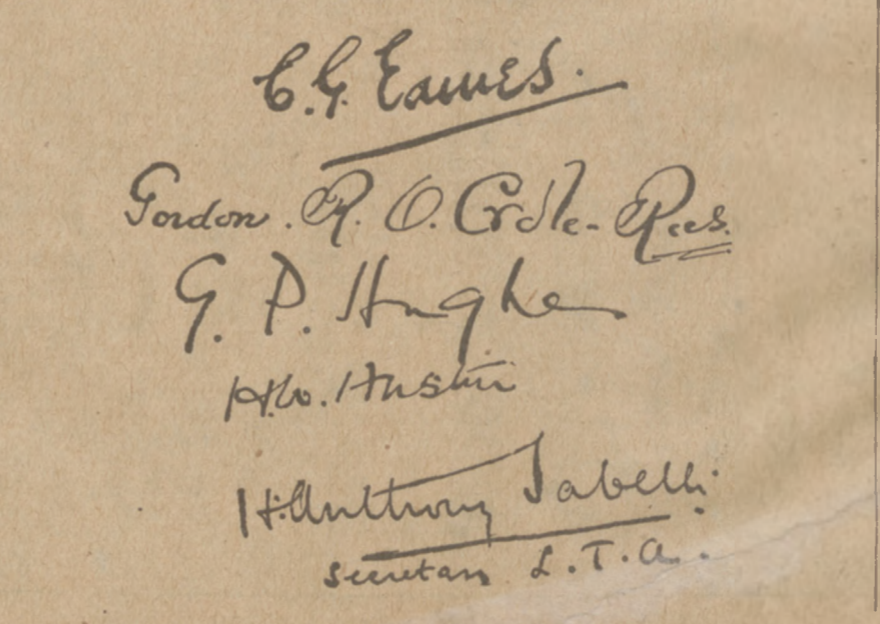 C.G. Eames.
Gordon. R. O. Crole-Rees.
G. P. Hughes
H.W. Austin
H. Anthony Sabelli.
Secretary L.T.A.